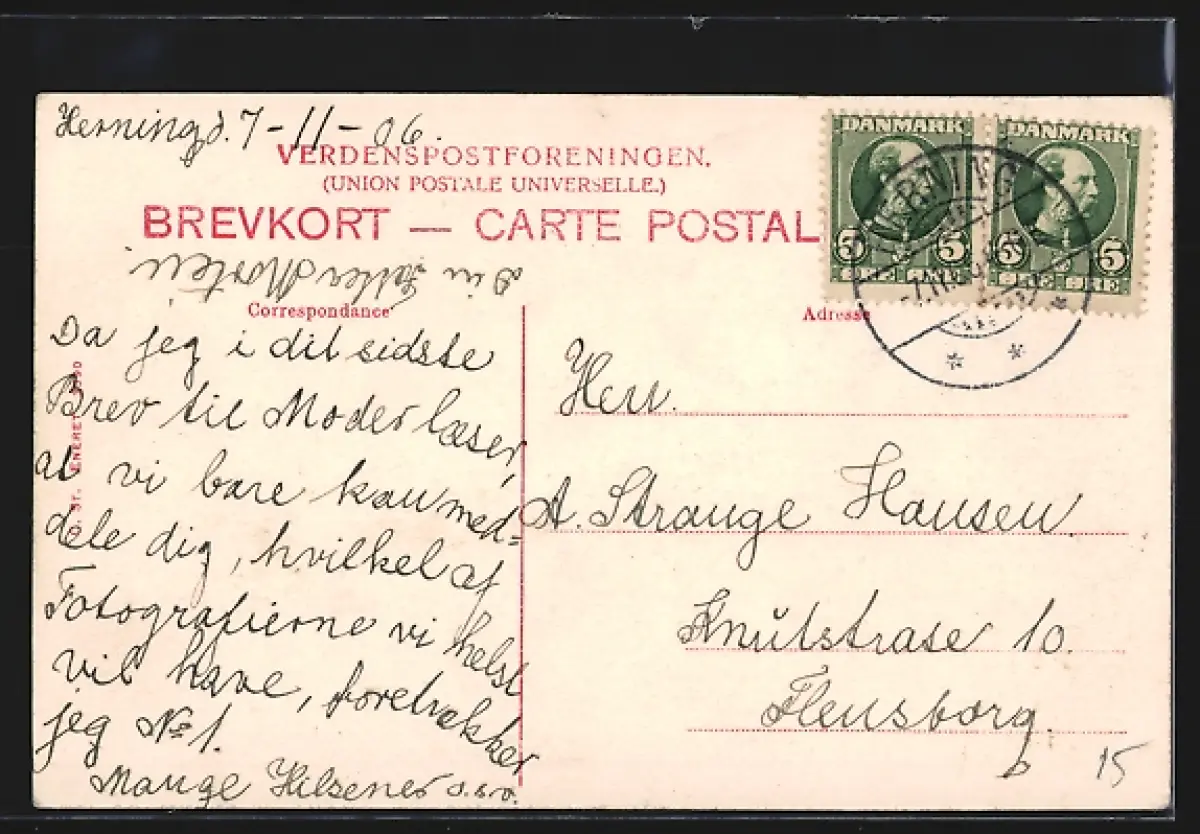 Herning d. 7-11-06.
VERDENSPOSTFORENINGEN.
(UNION POSTALE UNIVERSELLE.)
BREVKORT — CARTE POSTAL
DANMARK
5 5
ØRE ØRE
DANMARK
5 5
ØRE ØRE
HERNING
Din
Correspondance
Adresse
Da jeg i dit sidste
Brev til Moder læser,
at vi bare kan med=
dele dig, hvilket af
Fotografierne vi helst
vil have, foretrækker
jeg № 1.
Mange Hilsener o.s.v.
ENERET
Herr.
A. Strange Hansen
Knutstrase 10.
Flensborg.
15